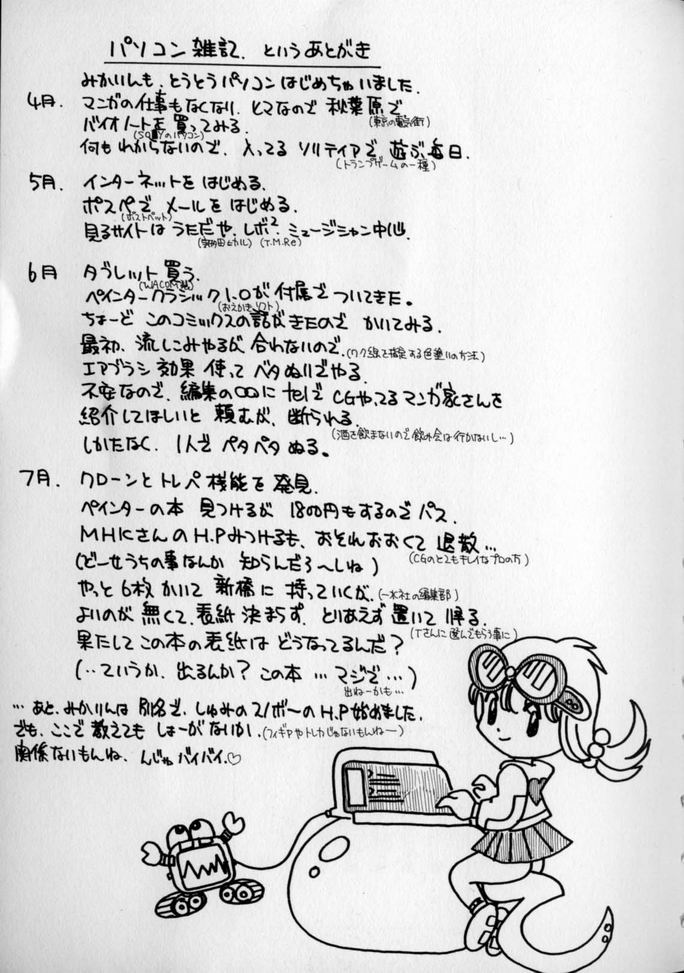 パソコン雑記、というあとがき
みかりんも、とうとうパソコンはじめちゃいました。
4月. マンガの仕事もなくなり、ヒマなので 秋葉原で
(東京の電気街)
バイオノートを買ってみる.
(SONYのパソコン)
何もわからないので、入ってる ソリティアで 遊ぶ毎日.
(トランプゲームの一種)
5月. インターネットを はじめる.
ポスペで メールを はじめる.
(ポストペット)
見るサイトは うただや、レボ² ミュージシャン中心.
(宇多田ヒカル) (T.M.Re)
6月 タブレット買う.
(WACOM)
ペインタークラシック1.0が 付属で ついてきた。
(おえかきソフト)
ちょーど このコミックスの話がきたので かいてみる.
最初、流しこみやるが 合わないので.(ワク線で指定する色塗りの方法)
エアブラシ 効果 使って ベタぬりでやる.
不安なので、編集の○○に telで CGやってるマンガ家さんを
紹介してほしいと 頼むが、断られる.
(酒を飲まないので 飲み会は行かないし…)
しかたなく、1人で ペタペタ ぬる。
7月. クローンと トレペ 機能を 発見.
ペインターの本 見つけるが 1800円もするので パス.
MHKさんの H.Pみつけるも、おそれおおくて 退散…
(CGのとてもキレイなプロの方)
(どーせうちの事なんか 知らんだろ〜しね)
やっと 6枚 かいて 新橋に 持っていくが.(一水社の編集部)
よいのが 無くて、表紙 決まらず、とりあえず 置いて 帰る.
(Tさんに 選んでもらう事に)
果たして この本の表紙は どうなってるんだ?
(‥ていうか、出るんか? この本 … マジで …)
出ねーかも…
… あと、みかりんは 別名で、しゅみのスノボーの H.P 始めました.
でも、ここで 教えても しょーがないか.(フィギアやトレカじゃないもんねー)
関係ないもんね、んじゃ バイバイ.♡